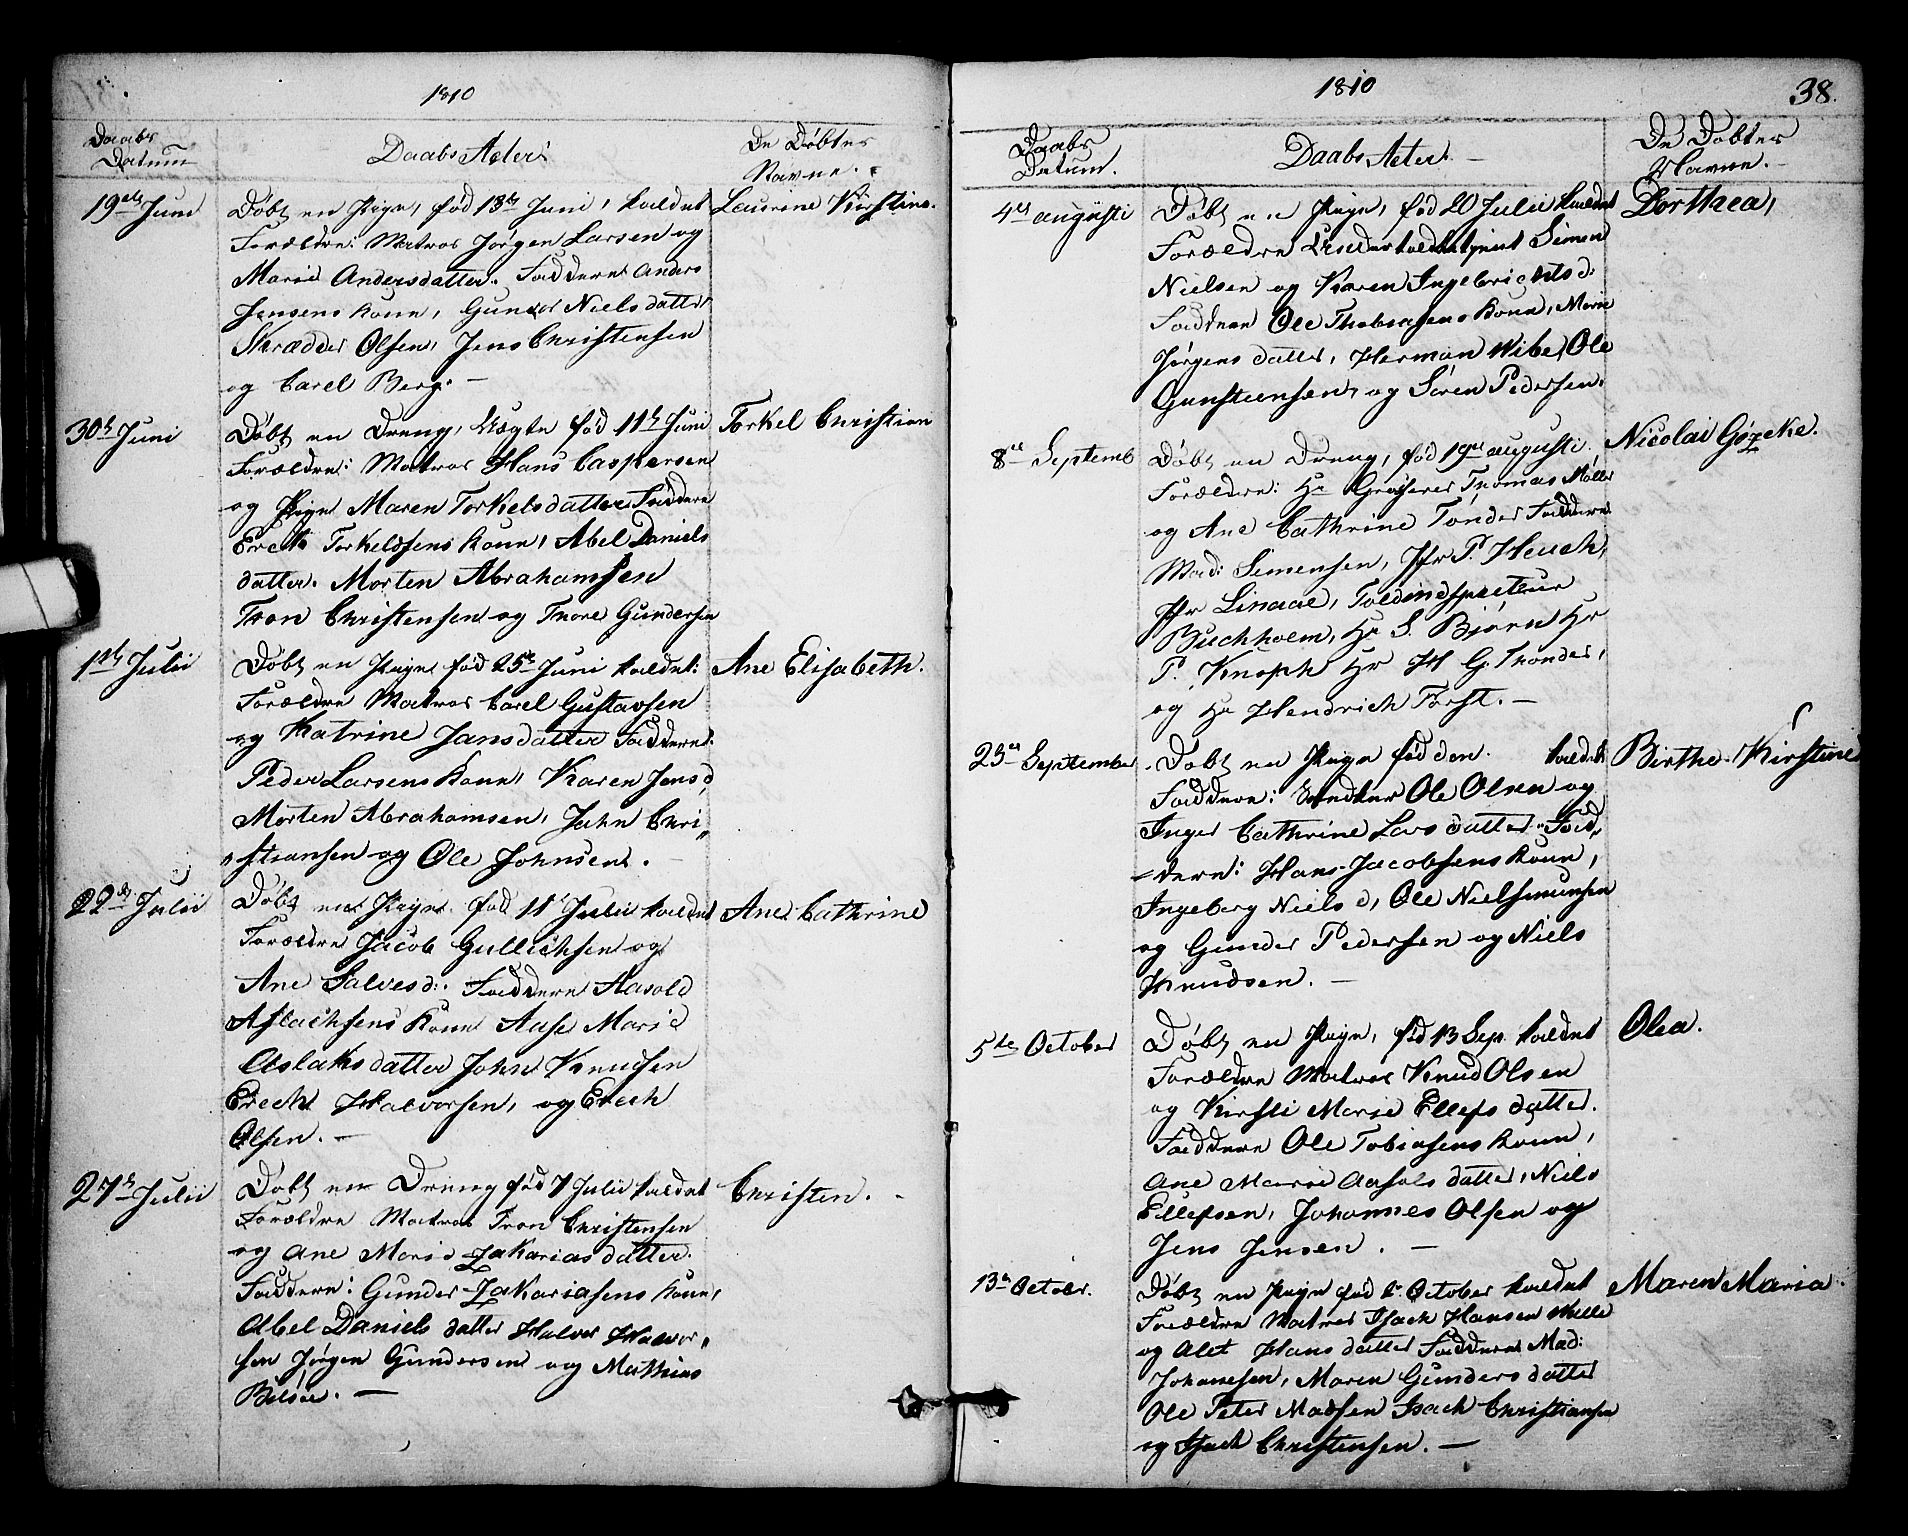 1810
Daabs Datum
Daabs Acter
De Døbtes Navne.
19de Juni
Døbt en Pige, fød 13de Juni, kaldet
Laurine Kirstine.
Forældre: Matros Jørgen Larsen og
Marie Andersdatter. Faddere Anders
Jensens Kone, Gunder Nielsdatter
Skrædder Olsen, Jens Christensen
og Carel Berg. —
30te Juni
Døbt en Dreng, Uægte fød 11te Juni
Torkel Christian
Forældre: Matros Hans Caspersen
og Pige Maren Torkelsdatter Faddere
Erek Torkeldsens Kone, Abel Daniels
datter. Morten Abrahamsen
Tron Christensen og Thore Gundersen
1ste Julii
Døbt en Pige fød 25de Juni kaldet:
Ane Elisabeth.
Forældre Matros Carel Gustavsen
og Katrine Jansdatter Faddere:
Peder Larsens Kone, Karen Jensd,
Morten Abrahamsen, Jahn Chri-
stiansen og Ole Johnsen. —
22de Julii
Døbt en Pige fød 11 Julii kaldet
Ane Cathrine
Forældre Jacob Gullichsen og
Ane Salvesd: Faddere Aasold
Aslachsens Kone Aase Marie
Aslaksdatter John Knudsen
Erech Halvorsen, og Erech
Olsen. —
27de Julii
Døbt en Dreng fød 7 Julii kaldet
Christen. -
Forældre Matros Tron Christensen
og Ane Marie Zakariasdatter.
Faddere: Gunder Zakariasens Kone,
Abel Danielsdatter Halvor Halvor-
sen Jørgen Gundersen og Mathias
Belsøe. —
1810
38.
Daabs Datum.
Daabs Acter. —
De Døbtes Navne. -
4de augusti
Døbt en Pige, fød 20 Julii kaldet
Dorthea,
Forældre Simen
Nielsen og Karen Ingebrichtsd:
Faddere Ole Thobiasens Kone, Marie
Jørgensdatter, Herman Wibe, Ole
Gunsteensen og Søren Pedersen.
8de Septemb
Døbt en Dreng, fød 19de augusti.
Nicolai Gørcke.
Forældre: Hr Grosserer Thomas Møller
og Ane Cathrine Tønder Faddere
Mad: Simensen, Jfr P. Heuch,
Jfr Linaae, Toldinspecteur
Buchholm, Hr S. Bjørn Hr
P. Knoph Hr H G. Thonder,
og Hr Hendrich Först. —
23de September
Døbt en Pige fød den. kaldet
Birthe Kirstine
Faddere: Ole Olsen og
Inger Cathrine Larsdatter Fad-
dere: Hans Jacobsens Kone,
Ingeberg Nielsd, Ole Nielsmunsen
og Gunder Pedersen og Niels
Knudsen. —
5te October
Døbt en Pige, fød 13 Sep. kaldet
Olea.
Forældre Matros Knud Olsen
og Kirsti Marie Ellefsdatter.
Faddere Ole Tobiasens Kone,
Ane Marie Aasolsdatter, Niels
Ellefsen, Johannes Olsen og
Jens Jensen. —
13de Octobr.
Døbt en Pige fød 2de October kaldet
Maren Maria.
Forældre Matros Isach Hansen Wille
og Alet Hansdatter Faddere Mad:
Johanesen, Maren Gundersdatter
Ole Peter Madsen Isach Christiansen
og Isach Christensen. —